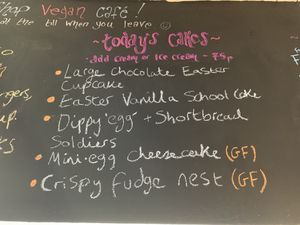 hop Vegan Café!
at the till when you leave ☺
~today's cakes~
- add cream or ice cream - 75p
• Large Chocolate Easter
Cupcake
• Easter Vanilla School Cake
• Dippy 'egg' + Shortbread
Soldiers
• Mini-egg cheesecake (GF)
• Crispy fudge nest (GF)